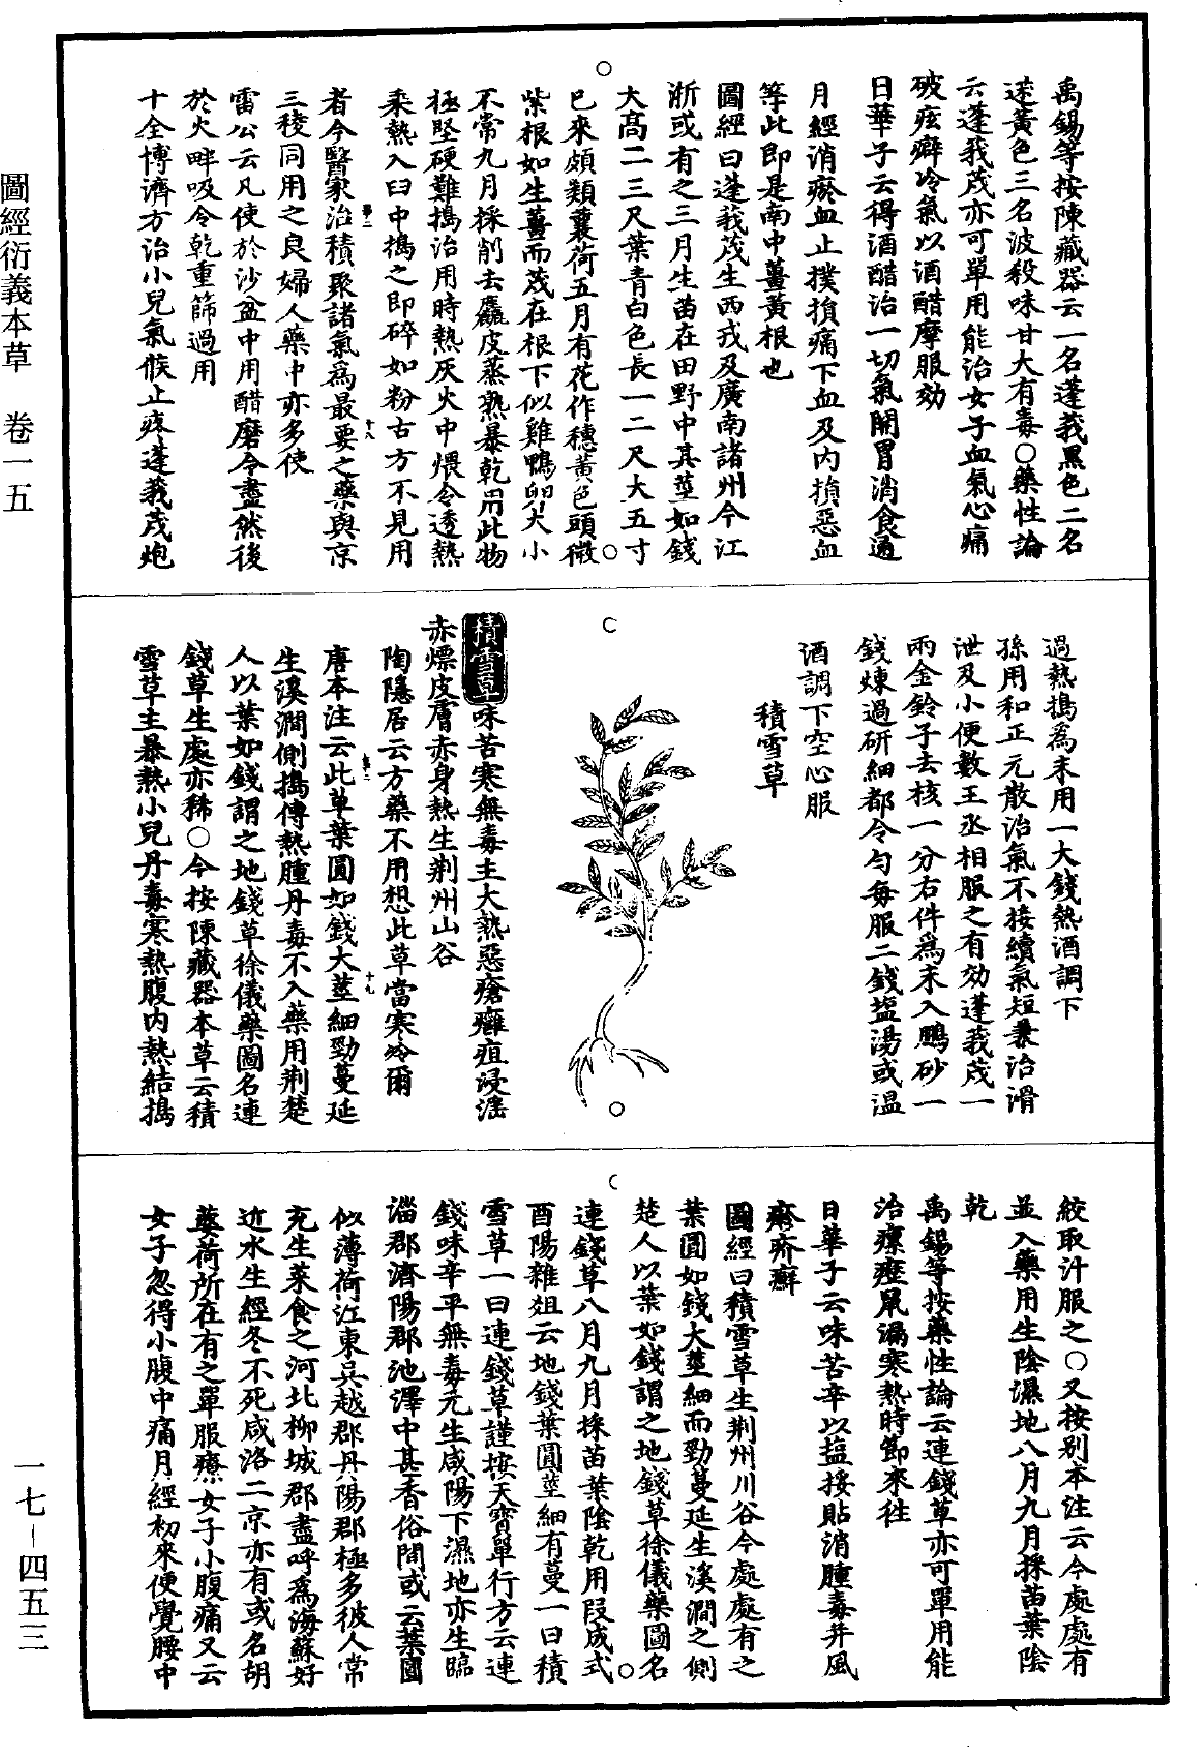 禹錫等按陳藏器云一名蓬莪黑色二名
蒁黃色三名波殺味甘大有毒○藥性論
云蓬莪茂亦可單用能治女子血氣心痛
破痃癖冷氣以酒醋摩服効
日華子云得酒醋治一切氣開胃消食通
月經消瘀血止撲損痛下血及內損惡血
等此即是南中薑黃根也
圖經曰蓬莪茂生西戎及廣南諸州今江
浙或有之三月生苗在田野中其莖如錢
大高二三尺葉青白色長一二尺大五寸
已來頗類蘘荷五月有花作穗黃色頭微
紫根如生薑而茂在根下似雞鴨卵大小
不常九月採削去麤皮蒸熟暴乾用此物
極堅硬難搗治用時熱灰火中煨令透熱
乘熱入臼中搗之即碎如粉古方不見用
者今醫家治積聚諸氣爲最要之藥與京
三稜同用之良婦人藥中亦多使
雷公云凡使於沙盆中用醋磨令盡然後
於火畔吸令乾重篩過用
十全博濟方治小兒氣候止疼蓬莪茂炮
過熱搗爲末用一大錢熱酒調下
孫用和正元散治氣不接續氣短兼治滑
泄及小便數王丞相服之有効蓬莪茂一
兩金鈴子去核一分右件爲末入鵬砂一
錢煉過研細都令勻每服二錢盐湯或溫
酒調下空心服
積雪草
積雪草味苦寒無毒主大熱惡瘡癰疽浸淫
赤熛皮膚赤身熱生荊州山谷
陶隱居云方藥不用想此草當寒冷爾
唐本注云此草葉圓如錢大莖細勁蔓延
生溪澗側搗傅熱腫丹毒不入藥用荊楚
人以葉如錢謂之地錢草徐儀藥圖名連
錢草生處亦稀○今按陳藏器本草云積
雪草主暴熱小兒丹毒寒熱腹內熱結搗
絞取汁服之○又按别本注云今處處有
並入藥用生陰濕地八月九月採苗葉陰
乾
禹錫等按藥性論云連錢草亦可單用能
治瘰癧鼠漏寒熱時節來往
日華子云味苦辛以盐挼貼消腫毒并風
瘮疥癬
圖經曰積雪草生荊州川谷今處處有之
葉圓如錢大莖細而勁蔓延生溪澗之側
楚人以葉如錢謂之地錢草徐儀藥圖名
連錢草八月九月採苗葉陰乾用段成式
酉陽雜俎云地錢葉圓莖細有蔓一曰積
雪草一曰連錢草謹按天寶單行方云連
錢味辛平無毒元生咸陽下濕地亦生臨
淄郡濟陽郡池澤中甚香俗間或云葉圓
似薄荷江東吳越郡丹陽郡極多彼人常
充生菜食之河北柳城郡盡呼爲海蘇好
近水生經冬不死咸洛二京亦有或名胡
薄荷所在有之單服療女子小腹痛又云
女子忽得小腹中痛月經初來便覺腰中
圖經衍義本草 卷一五
一七－四五三